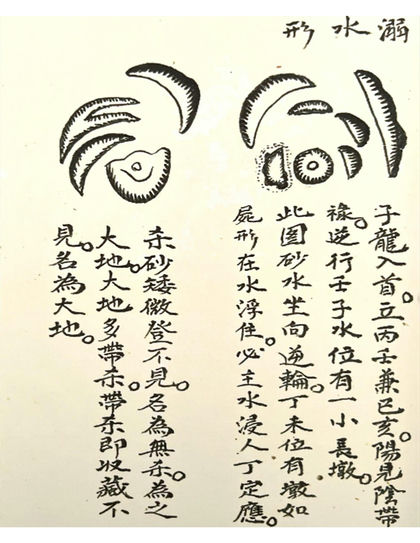 溺水形
子龍入首立丙壬兼巳亥。陽見陰帶
祿。逆行壬子水位有一小長墩。
此圖砂水坐向逆輪。丁未位有墩如
屍形在水浮住。必主水浸人丁定應。
杀砂矮微登不見。名為無杀。為之
大地。大地多帶杀。帶杀即收藏不
見。名為大地。